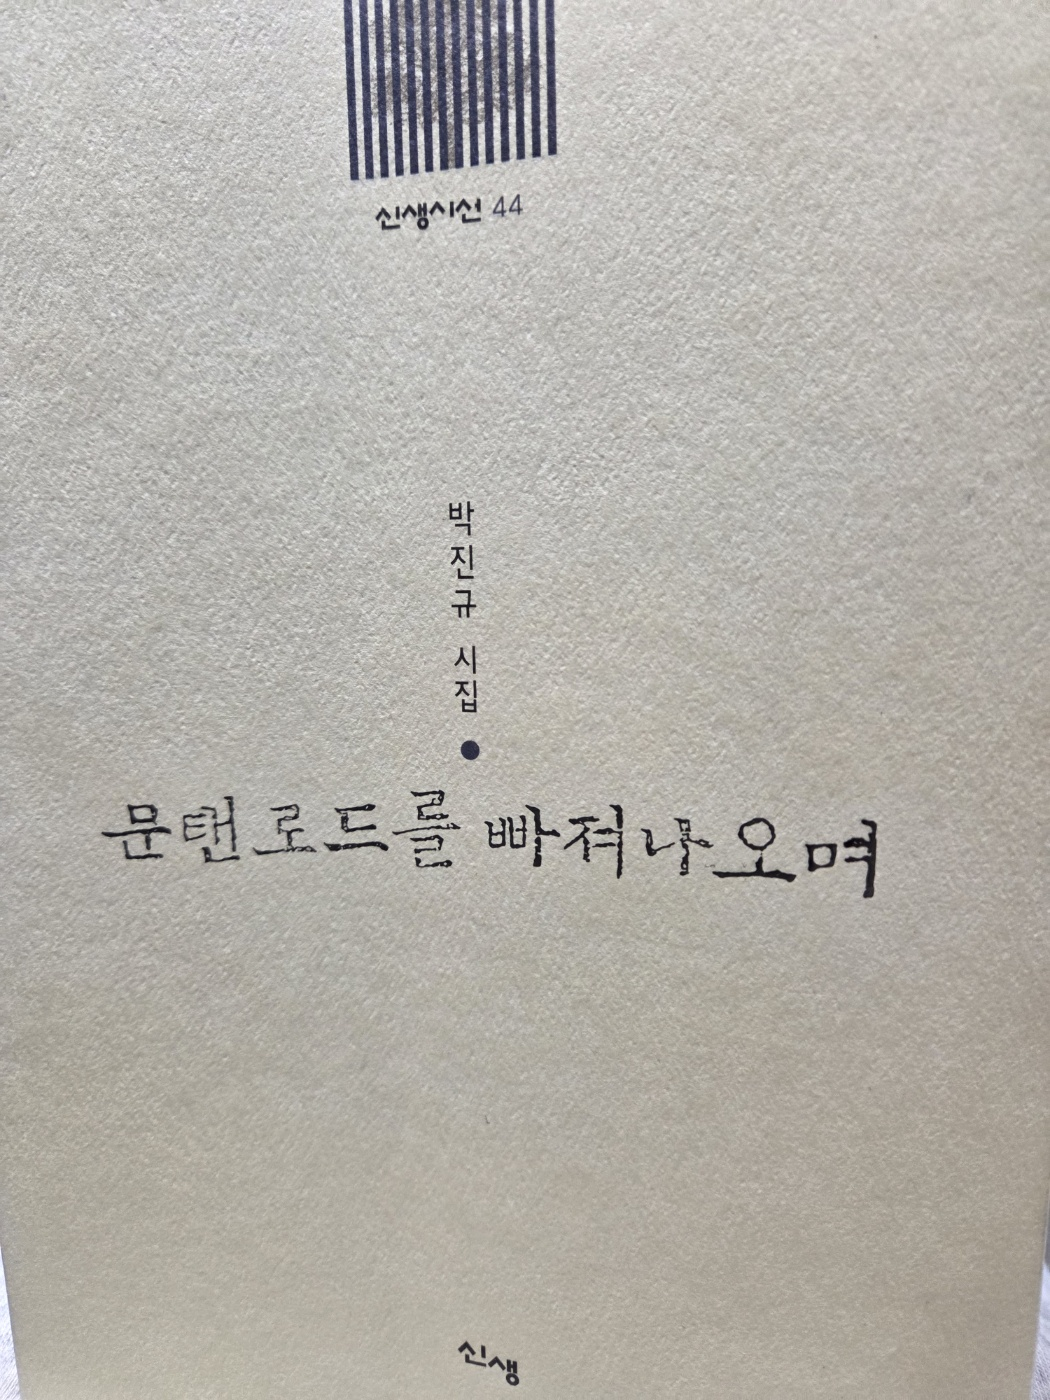 신생시선 44
박진규 시집
문탠로드를 빠져나오며
신생